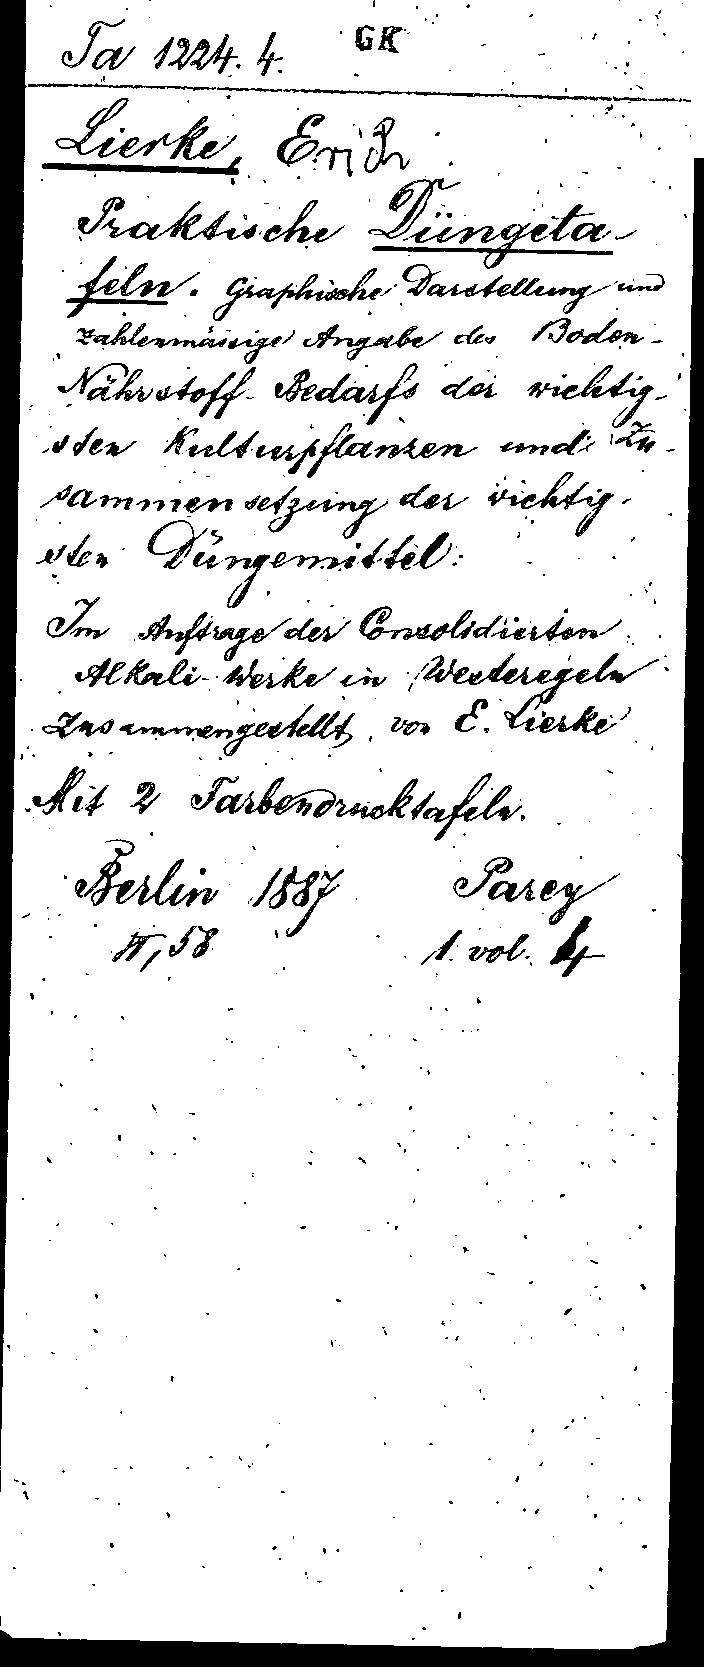 Ta 1224. 4. GK
Lierke, Erich
Praktische Düngeta-
feln. Graphische Darstellung und
zahlenmässige Angabe des Boden-
Nährstoff-Bedarfs der wichtig-
sten Kulturpflanzen und Zu-
sammensetzung der wichtig-
sten Düngemittel:
Im Auftrage der Consolidierten
Alkali-Werke in Westeregeln
zusammengestellt von E. Lierke
Mit 2 Farbendrucktafeln.
Berlin 1887 Parey
58
1. vol. 4